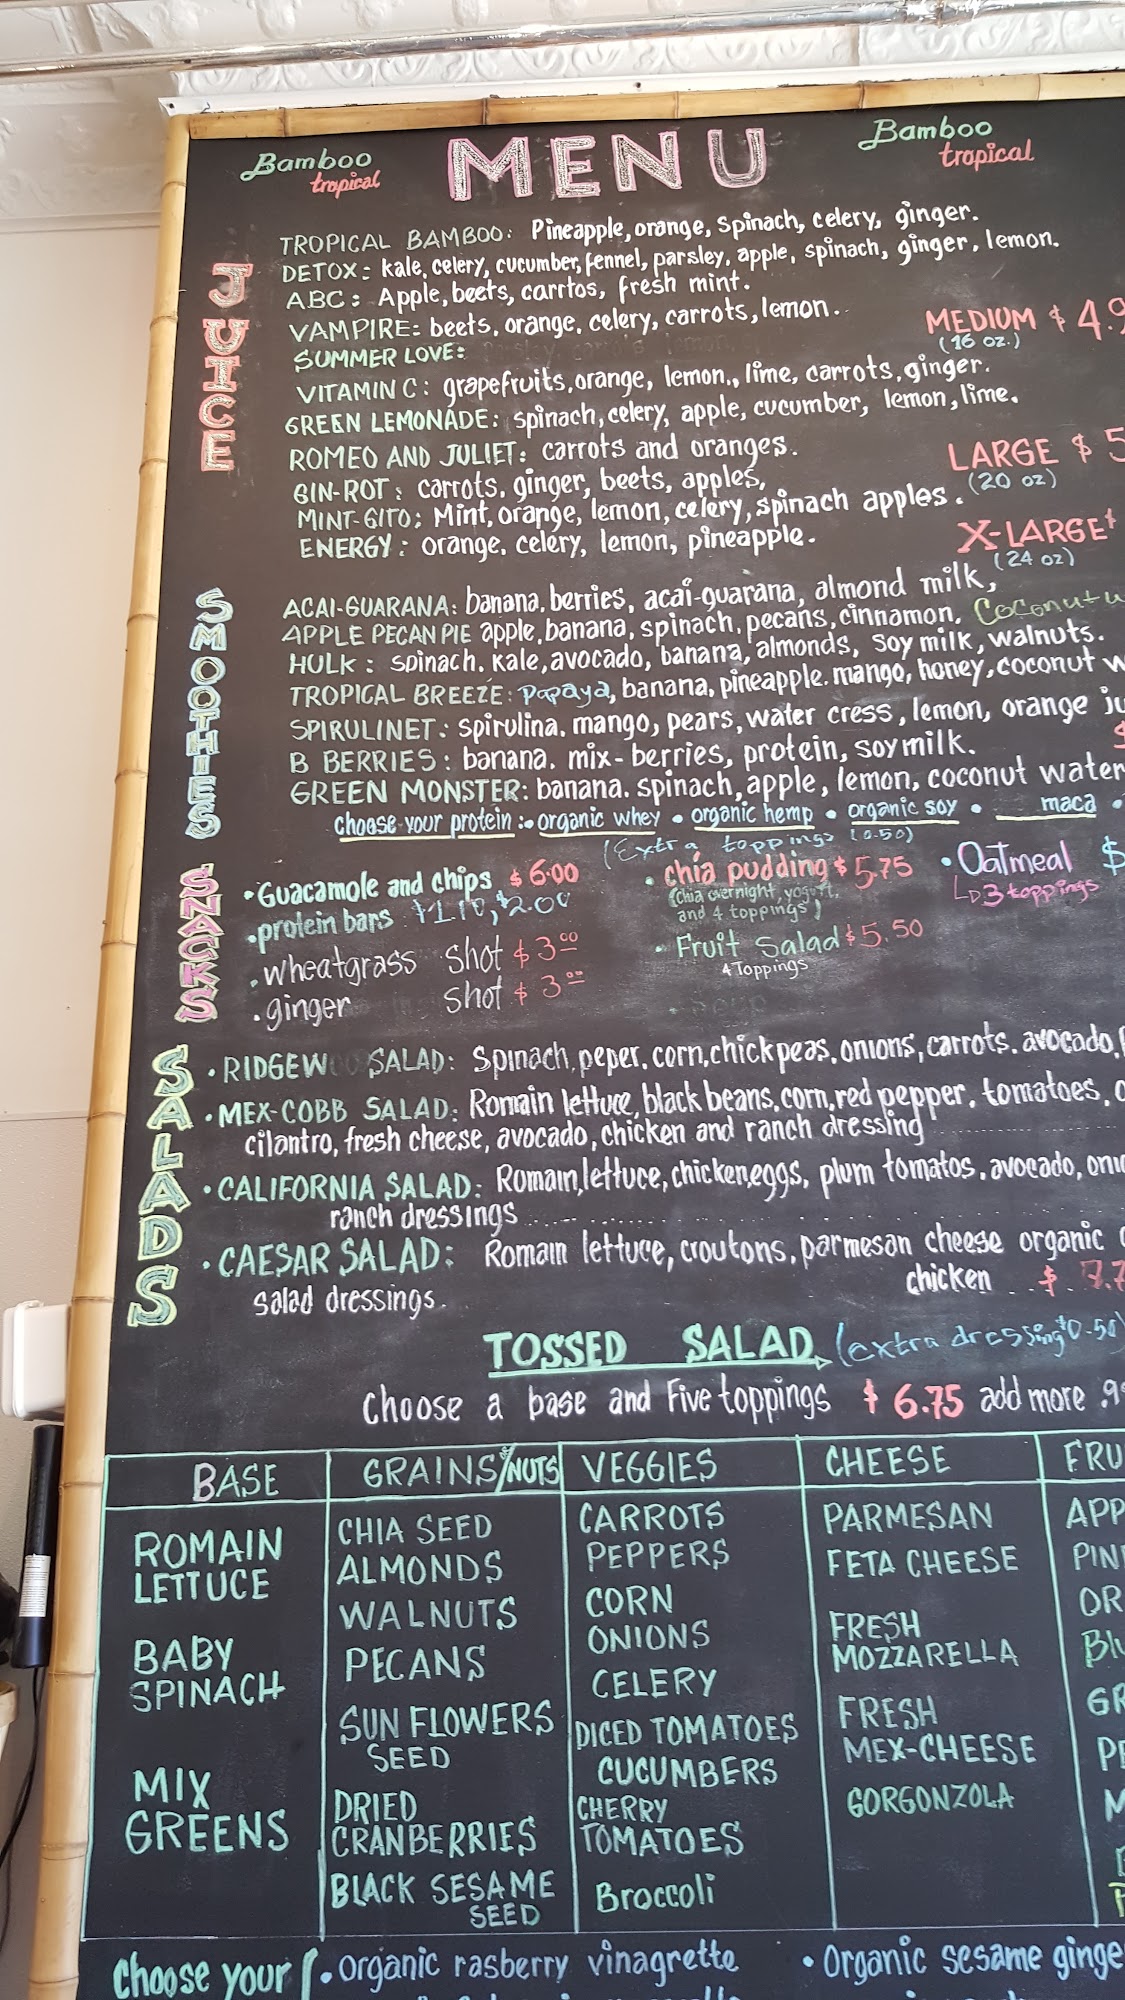 Bamboo tropical MENU Bamboo tropical
JUICE
TROPICAL BAMBOO: Pineapple, orange, Spinach, celery, ginger.
DETOX: kale, celery, cucumber, fennel, parsley, apple, spinach, ginger, lemon.
ABC: Apple, beets, carrtos, fresh mint.
VAMPIRE: beets, orange, celery, carrots, lemon.
MEDIUM $ 4.9
(16 oz.)
SUMMER LOVE:
VITAMIN C: grapefruits, orange, lemon., lime, carrots, ginger.
GREEN LEMONADE: spinach, celery, apple, cucumber, lemon, lime.
ROMEO AND JULIET: carrots and oranges.
LARGE $ 5
(20 oz)
GIN-ROT: carrots, ginger, beets, apples,
MINT-GITO; Mint, orange, lemon, celery, spinach apples.
X-LARGE $
(24 oz)
ENERGY: orange, celery, lemon, pineapple.
SMOOTHIES
ACAI-GUARANA: banana, berries, acai-guarana, almond milk,
APPLE PECAN PIE apple, banana, spinach, pecans, cinnamon, Coconut w
HULK: spinach, kale, avocado, banana, almonds, soy milk, walnuts.
TROPICAL BREEZE: papaya, banana, pineapple, mango, honey, coconut w
SPIRULINET: spirulina, mango, pears, water cress, lemon, orange ju
B BERRIES: banana, mix-berries, protein, soymilk.
$
GREEN MONSTER: banana. spinach, apple, lemon, coconut water
choose your protein: • organic whey • organic hemp • organic soy • maca •
(Extra toppings (0.50)
SNACKS
• Guacamole and chips $ 6.00
• protein bars $2.00
• wheatgrass shot $ 3.00
• ginger shot $ 3.00
• chia pudding $ 5.75
(chia overnight, yogurt,
and 4 toppings)
• Fruit Salad $5.50
4 Toppings
• Oatmeal $
3 toppings
SALADS
• RIDGEW SALAD: Spinach, peper, corn, chickpeas, onions, carrots, avocado,
• MEX-COBB SALAD: Romain lettuce, black beans, corn, red pepper, tomatoes, c
cilantro, fresh cheese, avocado, chicken and ranch dressing
• CALIFORNIA SALAD: Romain, lettuce, chicken, eggs, plum tomatos, avocado, onio
ranch dressings
• CAESAR SALAD: Romain lettuce, croutons, parmesan cheese organic c
chicken $ 7.7
salad dressings.
TOSSED SALAD (extra dressing $0.50)
choose a base and Five toppings $ 6.75 add more .9
BASE
ROMAIN
LETTUCE
BABY
SPINACH
MIX
GREENS
GRAINS/NUTS
CHIA SEED
ALMONDS
WALNUTS
PECANS
SUN FLOWERS
SEED
DRIED
CRANBERRIES
BLACK SESAME
SEED
VEGGIES
CARROTS
PEPPERS
CORN
ONIONS
CELERY
DICED TOMATOES
CUCUMBERS
CHERRY
TOMATOES
Broccoli
CHEESE
PARMESAN
FETA CHEESE
FRESH
MOZZARELLA
FRESH
MEX-CHEESE
GORGONZOLA
FRU
APP
PIN
OR
Blu
GR
PE
M
choose your • Organic rasberry vinagrette • Organic sesame ginge